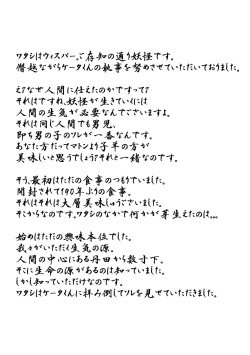 ワタシはウィスパー。ご存知の通り妖怪です。
僭越ながらケータくんの執事を努めさせていただいております。
え?なぜ人間に仕えたのかですって?
それはですね、妖怪が生きていくには
人間の生気が必要なんでございますよ。
それは同じ人間でも男児、
即ち男の子のソレが一番なんです。
あなた方だってマトンより子羊の方が
美味しいと思うでしょう?それと一緒なのです。
そう、最初はただの食事のつもりでいました。
開封されて190年ぶりの食事。
それはそれは大層美味しゅうございました。
そこからなのです。ワタシのなかで何かが芽生えたのは…
始めはただの興味本位でした。
我々がいただく生気の源。
人間の中心にある丹田から数寸下。
そこに生命の源があるのは知っていました。
しかし知っていただけなのです。
ワタシはケータくんに拝み倒してソレを見せていただきました。